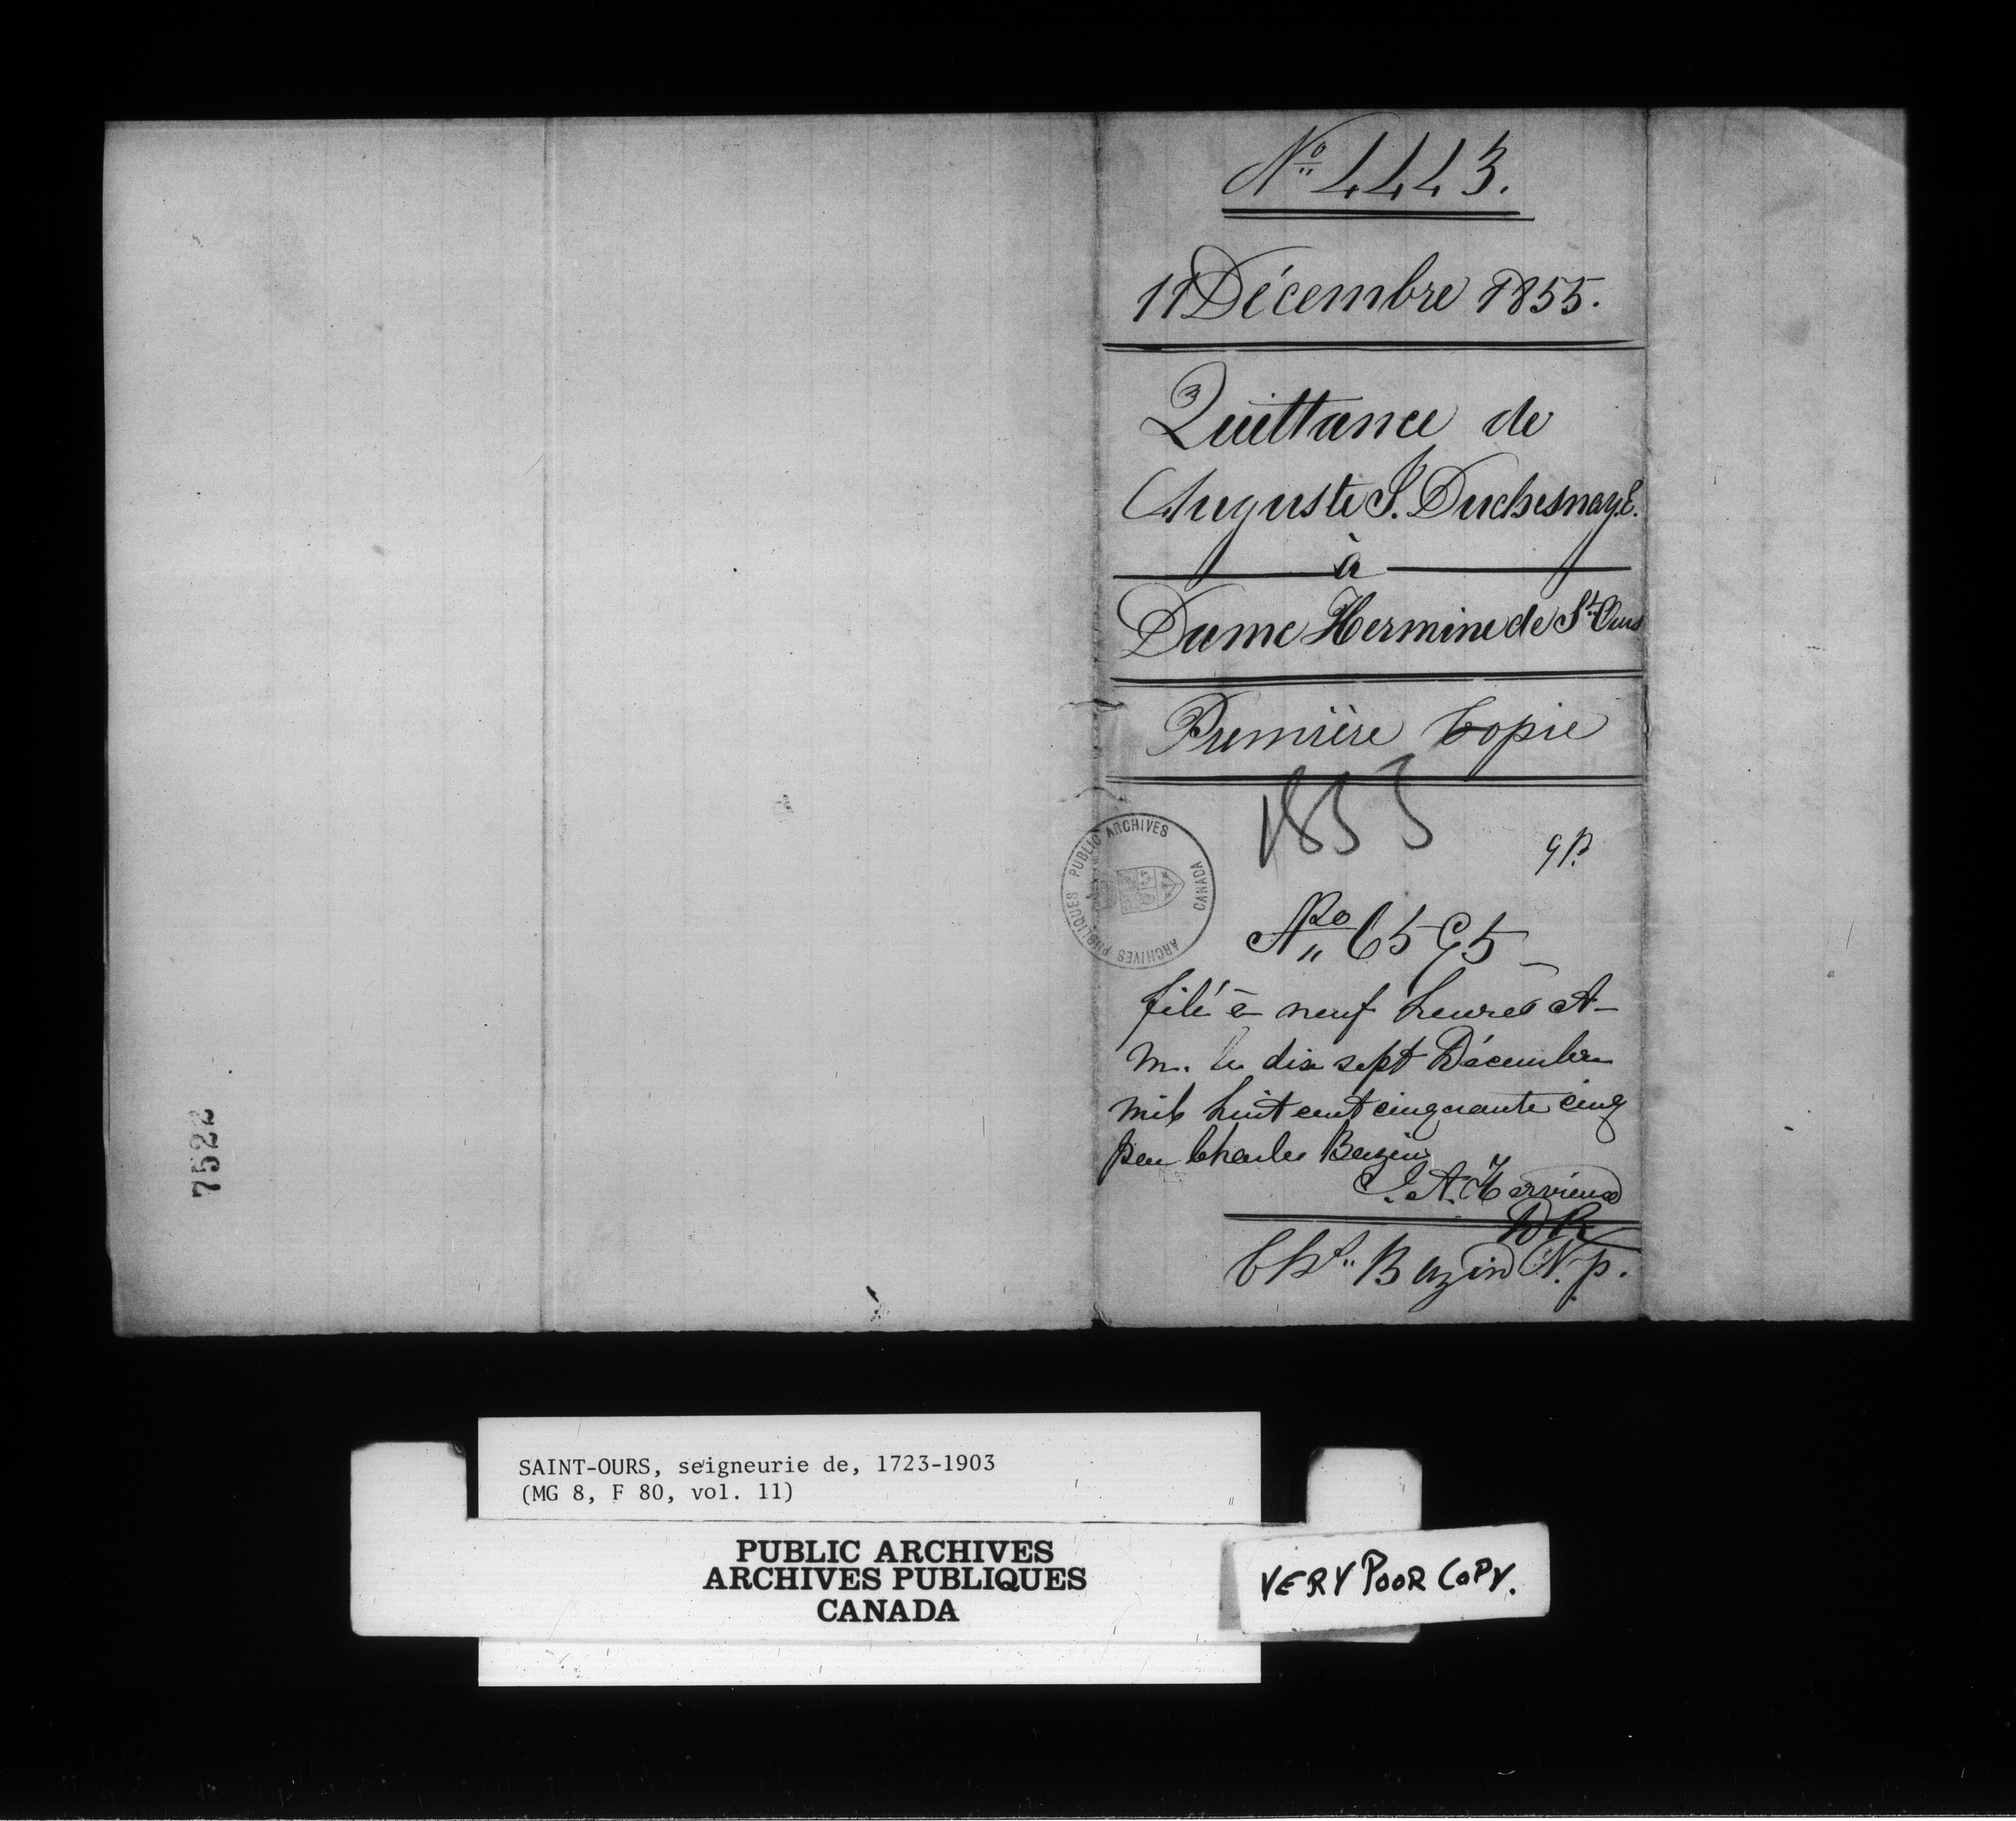 No 4443.
11 Décembre 1855.
Quittance de
Auguste J. Duchesnay E.
à
Dame Hermine de St Ours
Première Copie
1855
9 p.
No 6595
filé à neuf heures A
M. le dix sept Décembre
mil huit cent cinquante cinq
par Charles Bazin
J. A. Hervieux
DR
Chs Bazin N. p.
PUBLIC ARCHIVES
ARCHIVES PUBLIQUES
CANADA
7522
SAINT-OURS, seigneurie de, 1723-1903
(MG 8, F 80, vol. 11)
PUBLIC ARCHIVES
ARCHIVES PUBLIQUES
CANADA
VERY POOR COPY.